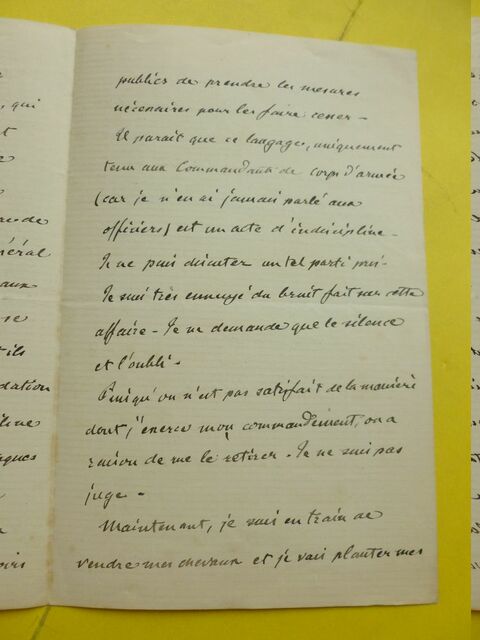 publics de prendre les mesures
nécessaires pour les faire cesser -
Il parait que ce langage, uniquement
tenu aux Commandants de corps d'armée
(car je n'en ai jamais parlé aux
officiers) est un acte d'indiscipline -
Je ne puis discuter un tel parti pris -
Je suis très ennuyé du bruit fait sur cette
affaire - Je ne demande que le silence
et l'oubli -
Puisqu'on n'est pas satisfait de la manière
dont j'exerce mon commandement, on a
raison de me le retirer - Je ne suis pas
juge -
Maintenant, je suis en train de
vendre mes chevaux et je vais planter mes
qui
général
aux
se
dation